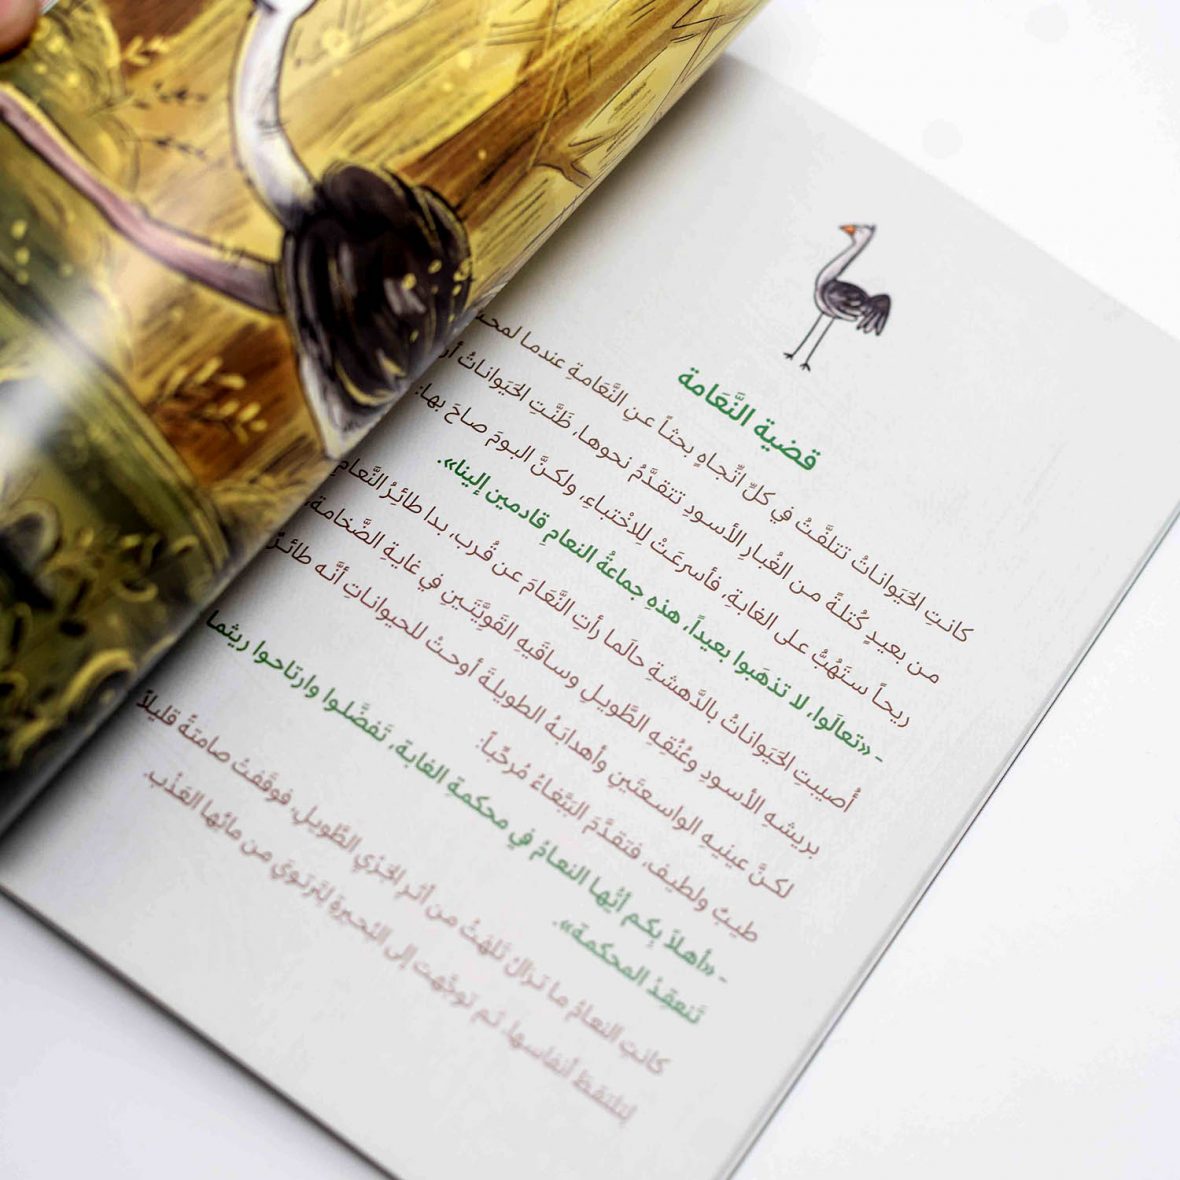 قضية النَّعَامة
كانتِ الحَيَواناتُ تتلَفَّتُ في كلِّ اتّجاهٍ بحثاً عنِ النَّعَامةِ عندما لمحت
من بعيدٍ كُتلةً من الغُبارِ الأسودِ تتقدَّمُ نحوها، ظَنَّتِ الحَيَواناتُ أن
ريحاً ستَهُبُّ على الغابةِ، فأسرعَتْ لِلاخْتباءِ، ولكنَّ البومَ صاحَ بها:
- «تعالَوا، لا تذهَبوا بعيداً، هذهِ جماعةُ النعامِ قادمين إلينا».
أُصيبتِ الحَيَواناتُ بالدَّهشةِ حالَما رأتِ النَّعَامَ عن قُرب، بدا طائرُ النَّعامِ
بريشهِ الأسودِ وعُنُقهِ الطَّويلِ وساقَيهِ القَوِيَّتَينِ في غايةِ الضَّخامة،
لكنَّ عينيهِ الواسعتَينِ وأهدابَهُ الطويلةَ أوحتْ للحيواناتِ أنَّه طائرٌ
طيبٌ ولطيف، فتقدَّمَ الببَّغاءُ مُرحِّباً:
- «أهلاً بِكم أيُّها النعامُ في محكمةِ الغابة، تَفضَّلوا وارتاحوا ريثما
تَنعقِدُ المحكمة».
كانتِ النعامُ ما تزالُ تَلهَثُ من أثرِ الجَرْيِ الطَّويلِ، فوَقَفتْ صامتةً قليلاً
لِتلتقطَ أنفاسها، ثم توجَّهت إلى البُحيرةِ لترتويَ من مائِها العَذْب.